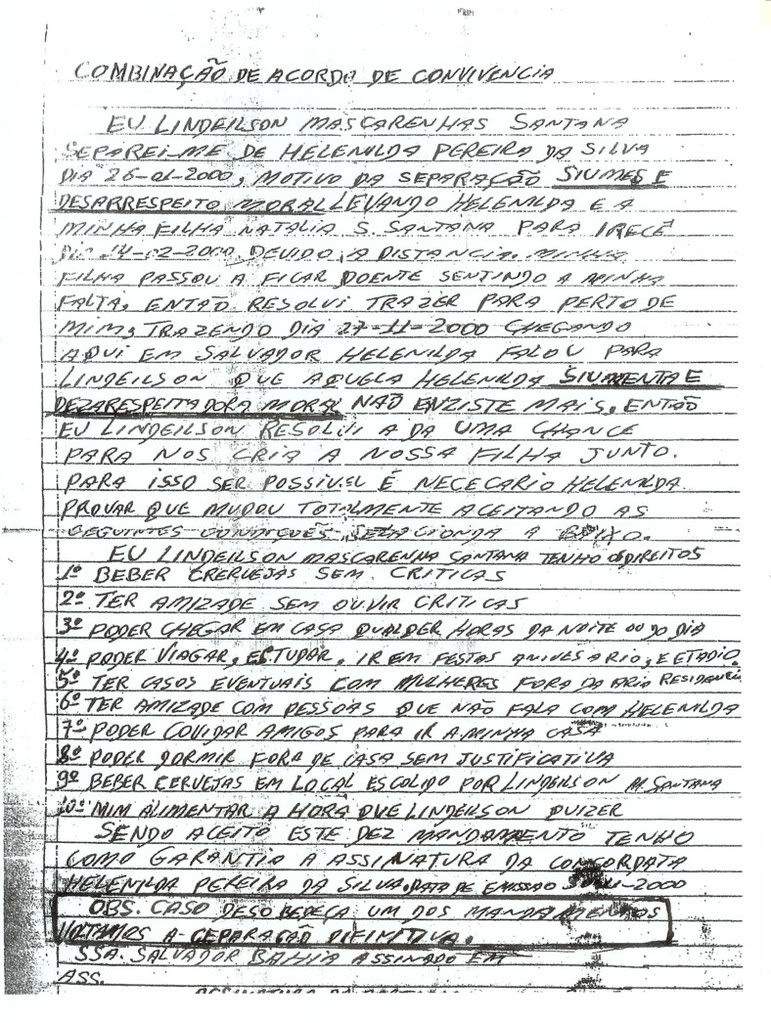 COMBINAÇÃO DE ACORDO DE CONVIVENCIA
EU LINDEILSON MASCARENHAS SANTANA
SEPAREI-ME DE HELENILDA PEREIRA DA SILVA
DIA 26-01-2000, MOTIVO DA SEPARAÇÃO SIUMES E
DESARRESPEITO MORAL LEVANDO HELENILDA E A
MINHA FILHA NATALIA S. SANTANA PARA IRECÊ
DIA 14-02-2000. DEVIDO A DISTANCIA. MINHA
FILHA PASSOU A FICAR DOENTE SENTINDO A MINHA
FALTA, ENTÃO RESOLVI TRAZER PARA PERTO DE
MIM, TRAZENDO DIA 27-11-2000 CHEGANDO
AQUI EM SALVADOR HELENILDA FALOU PARA
LINDEILSON QUE AQUELA HELENILDA SIUMENTA E
DEZARESPEITADORA MORAL NÃO ENZISTE MAIS. ENTÃO
EU LINDEILSON RESOLVI A DA UMA CHANCE
PARA NOS CRIA A NOSSA FILHA JUNTO.
PARA ISSO SER POSSIVEL É NECECARIO HELENILDA
PROVAR QUE MUDOU TOTALMENTE ACEITANDO AS
SEGUINTES CONDIÇÕES A BAIXO.
EU LINDEILSON MASCARENHA SANTANA TENHO OS DIREITOS
1º BEBER CRERVEJAS SEM CRITICAS
2º TER AMIZADE SEM OUVIR CRITICAS
3º PODER CHEGAR EM CASA QUALQER HORAS DA NOITE OU DO DIA
4º PODER VIAGAR, ESTUDAR, IR EM FESTAS ANIVESARIO, E ETADIO.
5º TER CASOS EVENTUAIS COM MULHERES FORA DA ARIA RESIDENCIA
6º TER AMIZADE COM PESSOAS QUE NÃO FALA COM HELENILDA
7º PODER COVIDAR AMIGOS PARA IR A MINHA CASA
8º PODER DORMIR FORA DE CASA SEM JUSTIFICATIVA
9º BEBER CERVEJAS EM LOCAL ESCOLIDO POR LINDEILSON M. SANTANA
10º MIM ALIMENTAR A HORA QUE LINDEILSON QUIZER
SENDO ACEITO ESTE DEZ MANDAMENTO TENHO
COMO GARANTIA A ASSINATURA DA CONCORDATA
HELENILDA PEREIRA DA SILVA. DATA DE EMISSÃO -2000
OBS. CASO DESOBEDEÇA UM DOS MANDAMENTOS
VOLTAMOS A CEPARAÇÃO DIFINITIVA.
SSA. SALVADOR BAHIA ASSINADO EM
ASS.